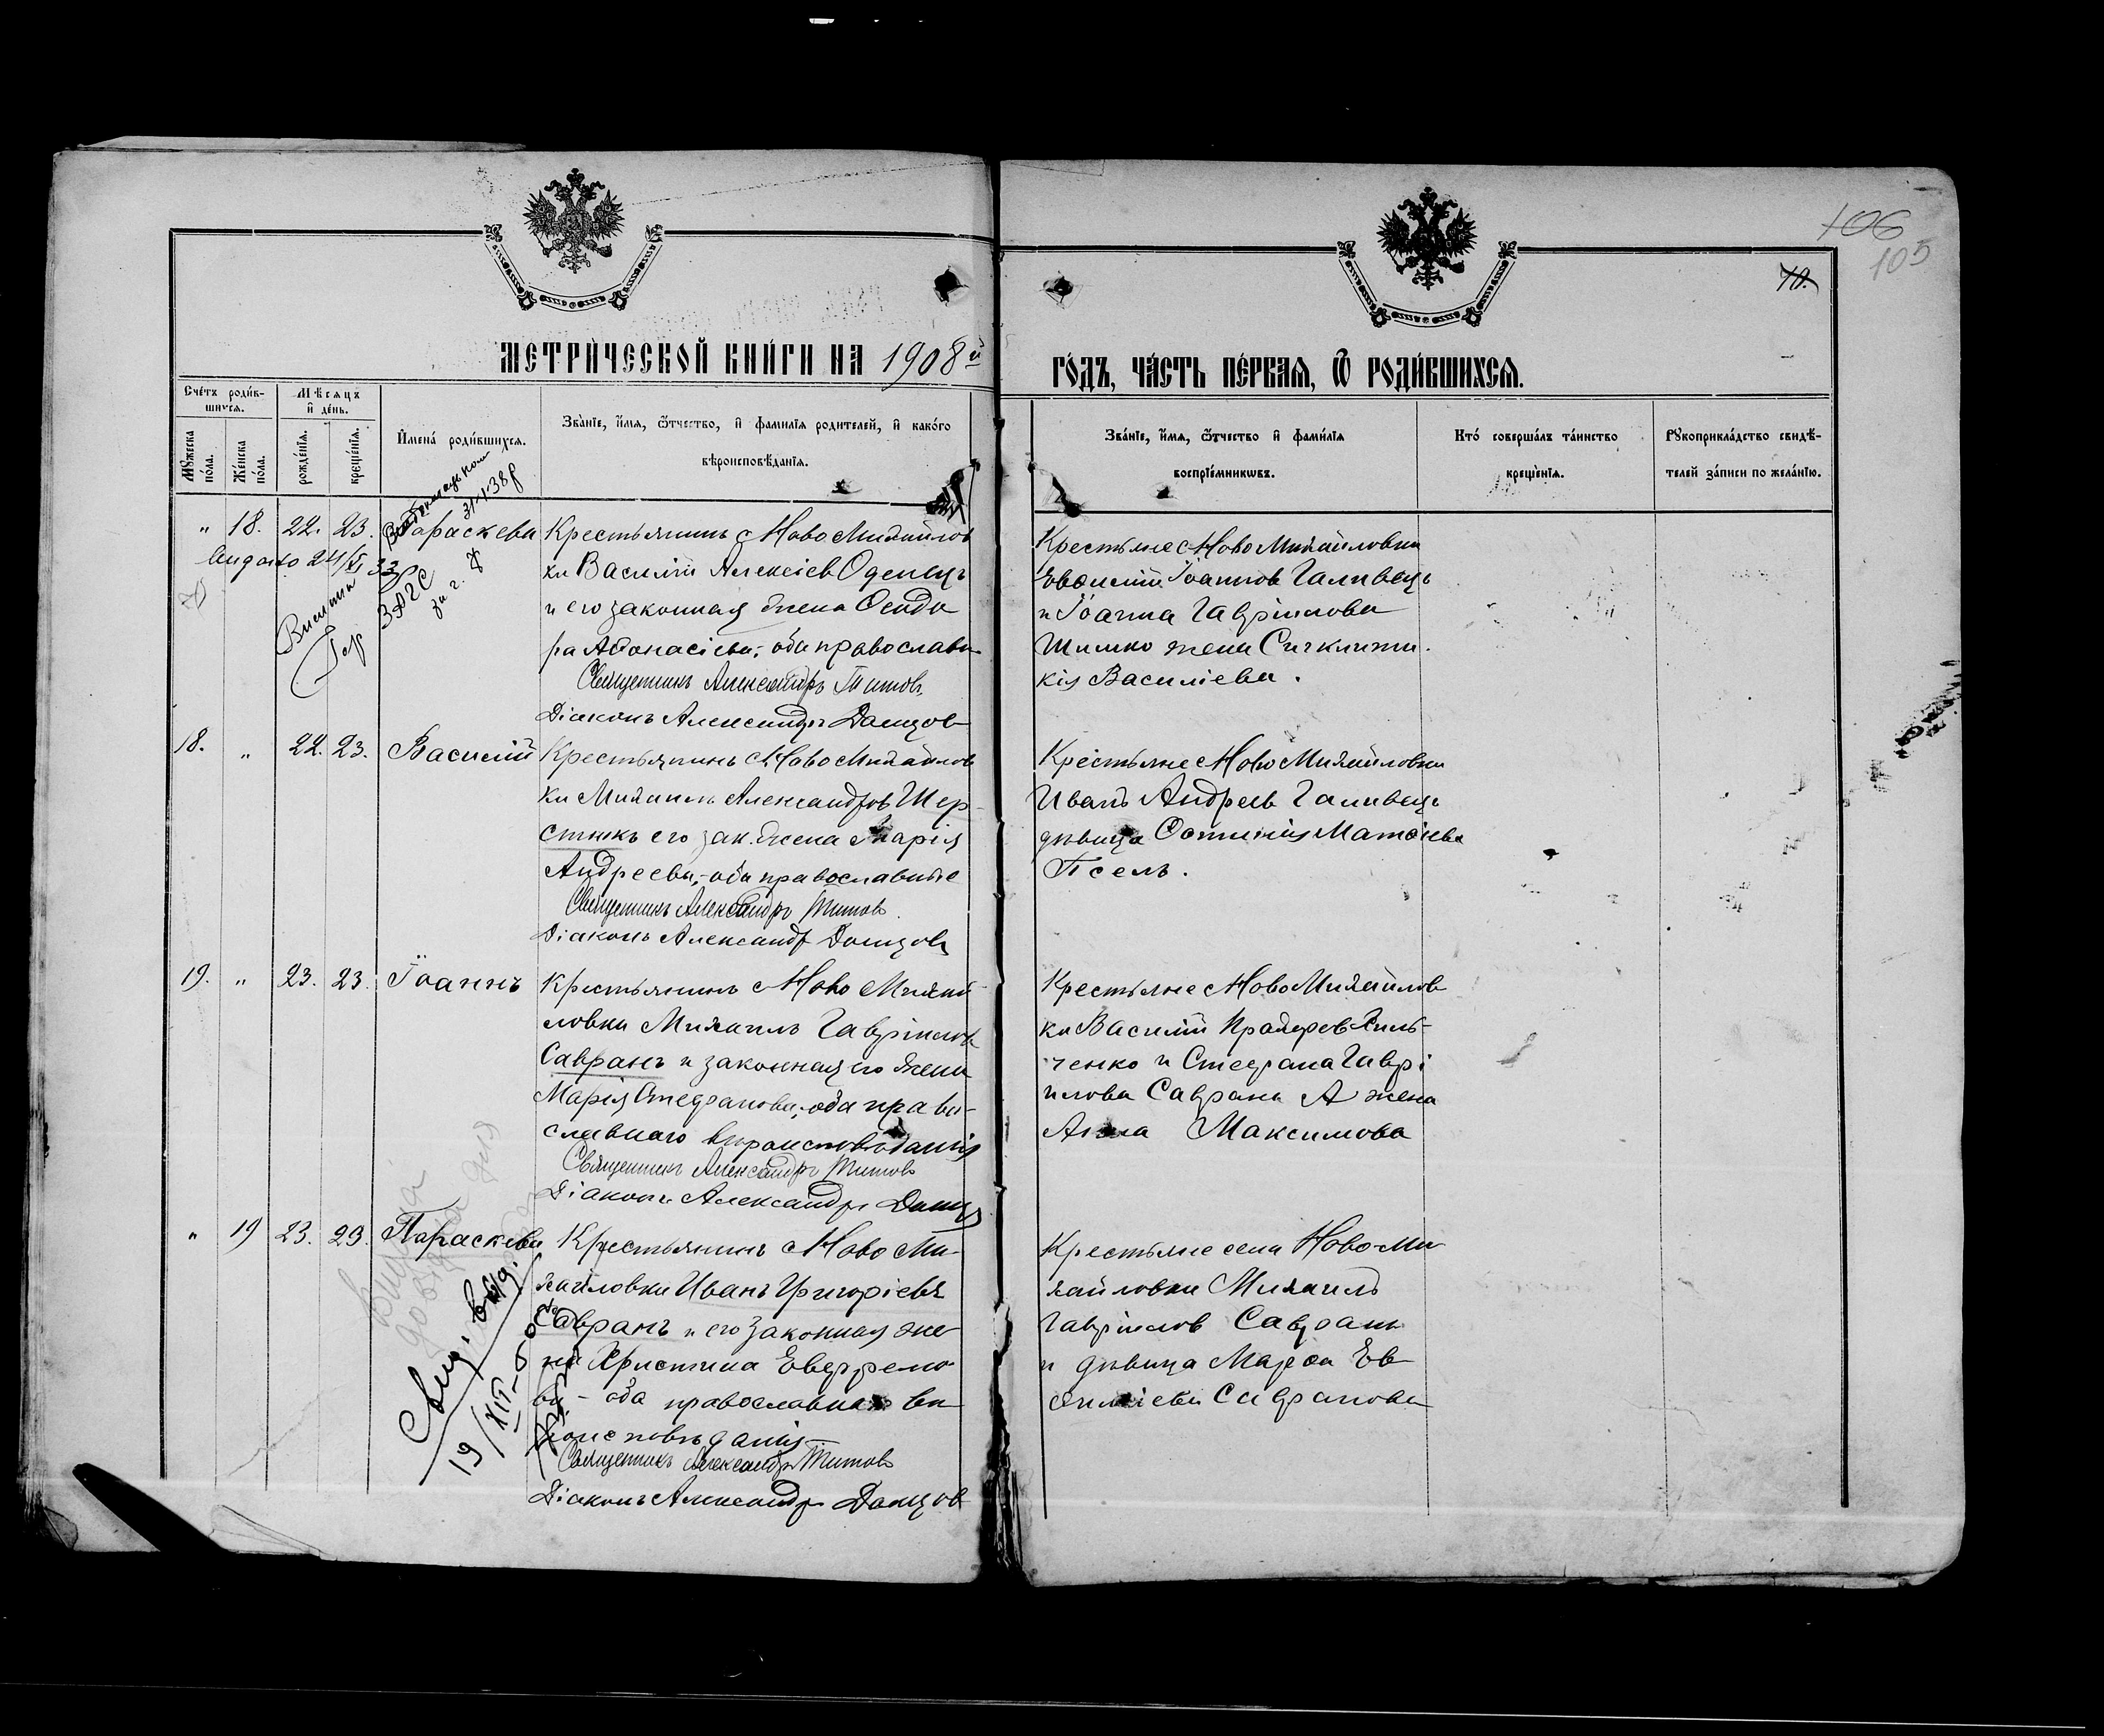 106
105
10.
МЕТРИЧЕСКОЙ КНИГИ НА 1908й
ГОДЪ, ЧАСТЬ ПЕРВАЯ, Ѿ РОДИВШИХСЯ.
Счетъ родив-
шихся.
Мѣсяцъ
и день.
Мужеска
пола.
Женска
пола.
рожденія.
крещенія.
Имена родившихся.
Званіе, имя, ѿтчество, и фамилія родителей, и какого
вѣроисповѣданія.
Званіе, имя, ѿтчество и фамилія
воспріемникѡвъ.
Кто совершалъ таинство
крещенія.
Рукоприкладство свидѣ-
телей записи по желанію.
" 18. 22. 23. Параскева
31/I 38 р
ЗАГС
Крестьянинъ с Ново Михайлов
ки Василій Алексіев Оденецъ
и его законная жена Ѳеодо
ра Афонасіева; оба православн
Священникъ Александръ Титовъ
Діаконъ Александръ
Крестьяне с Ново Михайловки
Іоаннов Галивецъ
и Іоанна Гавріилова
Шимко жена Сигклити
кія Васильева.
18. " 22. 23. Василій
Крестьянинъ с Ново Михайлов
ки Михаилъ Александров Шер
стюкъ его зак. жена Марія
Андреева, - оба православные
Священникъ Александръ Титовъ
Діаконъ Александр
Крестьяне с Ново Михайловки
Иванъ Андреев Галивецъ
дѣвица Матѳіева
Псель.
19. " 23. 23. Іоаннъ
Крестьянинъ с Ново Михай
ловки Михаилъ Гавріилов
Савранъ и законная его жена
Марія Стефанова; оба право-
славнаго вѣроисповѣданія
Священникъ Александръ Титовъ
Діаконъ Александръ
Крестьяне с Ново Михайлов
ки Василій
ченко и Стефана Гаврі
илова Саврана жена
Анна Максимова
" 19 23. 23. Параскева
Свид. выд.
19/XII-50
Крестьянинъ с Ново Ми-
хайловки Иванъ Григоріевъ
Савранъ и его законная же-
на Христина Евфремо
ва - оба православнаго вѣ
роисповѣданія
Священникъ Александръ Титовъ
Діаконъ Александръ
Крестьяне села Ново-Ми
хайловки Михаилъ
Гавріилов Савранъ
и дѣвица Марѳа Ев
Савранова